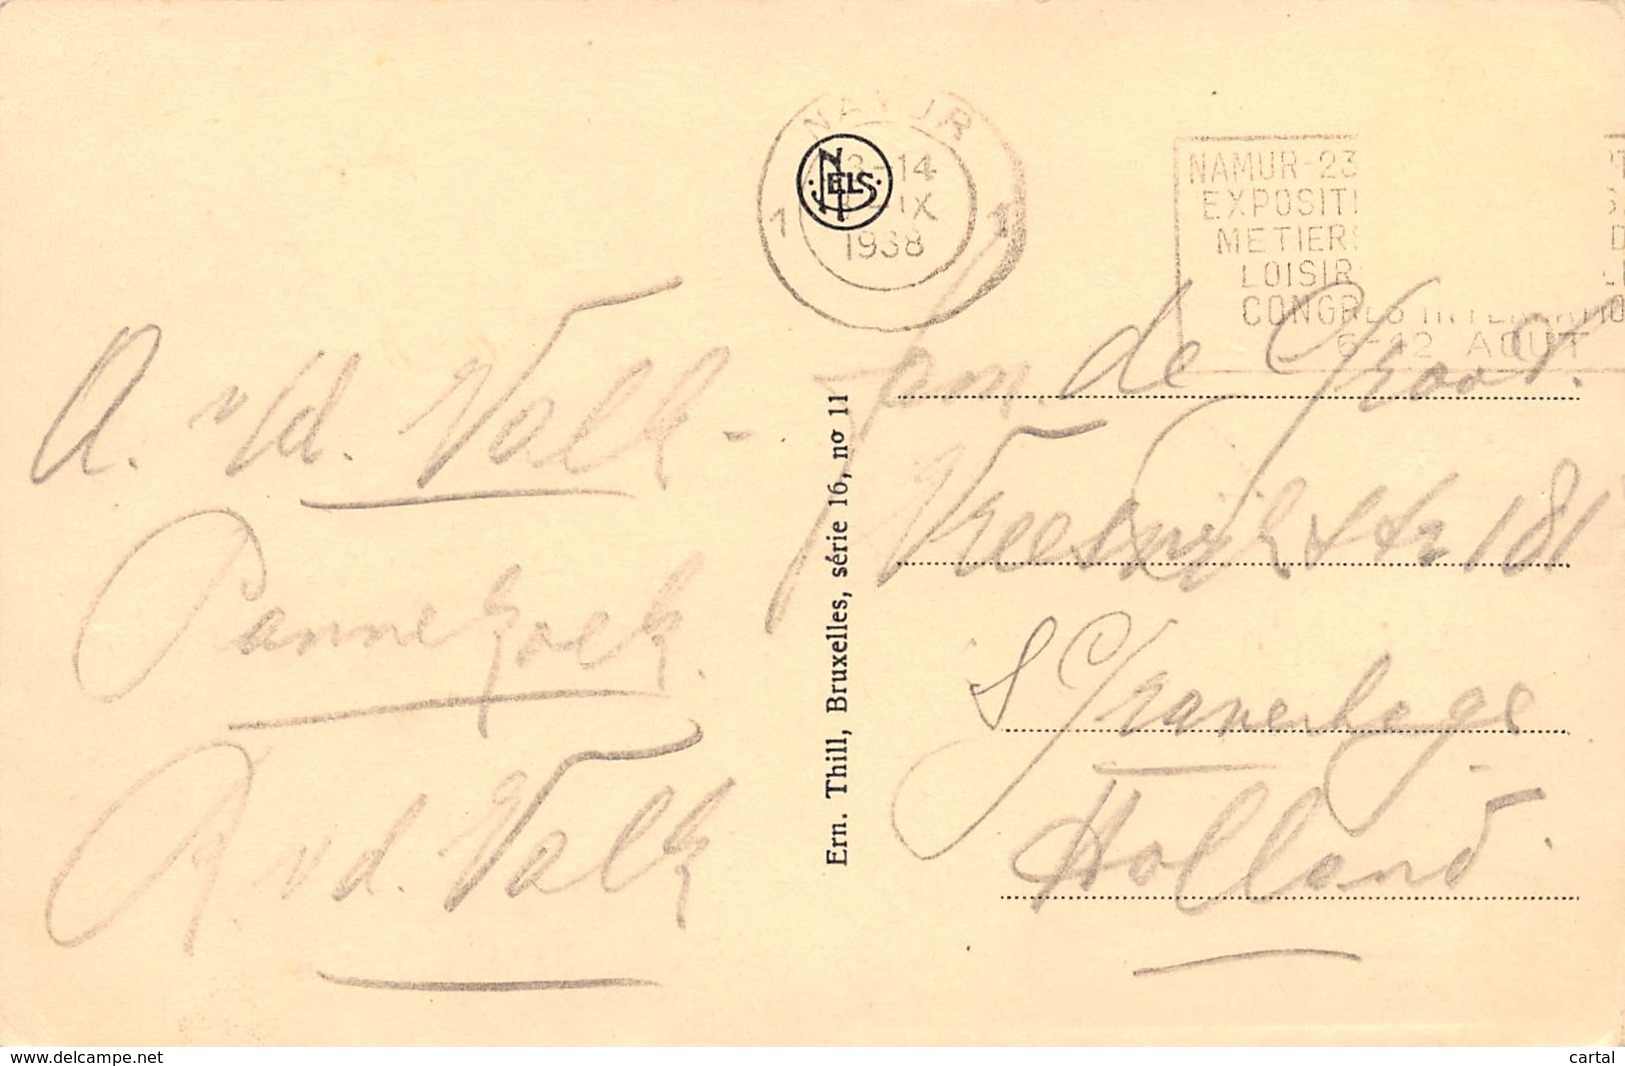 NAMUR
13-14
IX
1938
1 1
NELS
NAMUR-23
EXPOSITI
METIERS
LOISIR
CONGRES INTERNATIO
6-12 AOUT
A. v/d. Valk -
Pannekoek.
R. v d. Valk
Ern. Thill, Bruxelles, série 16, nº 11
Fam. de Groot.
Vreeswijkstr 181
S Gravenhage
Holland.
www.delcampe.net
cartal